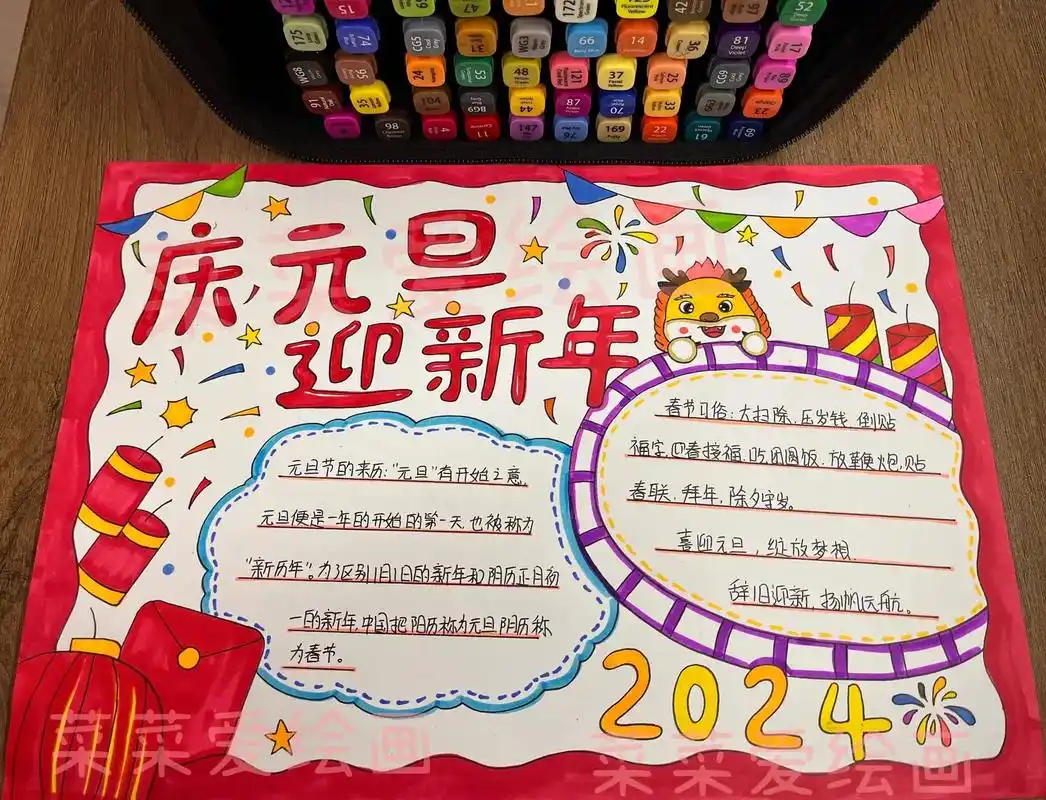 175
74
CG5
Cool Grey
31
WG3
66
Baby Blue
14
36
81
Deep Violet
17
52
15
47
172
42
Fluorescent Yellow
56
24
53
48
121
37
Pastel Yellow
25
CG9
89
91
35
104
BG9
44
87
Azalea Purple
70
33
23
Orange
98
4
11
147
76
169
Putty
22
61
69
庆元旦
迎新年
元旦节的来历:“元旦”有开始之意,
元旦便是一年的开始的第一天,也被称为
“新历年”。为了区别1月1日的新年和阴历正月初
一的新年,中国把阳历称为元旦,阴历称
为春节。
春节习俗:大扫除、压岁钱、倒贴
福字,迎春接福、吃团圆饭、放鞭炮、贴
春联、拜年、除夕守岁。
喜迎元旦,绽放梦想.
辞旧迎新,扬帆启航。
2024
菜菜爱绘画
菜菜爱绘画